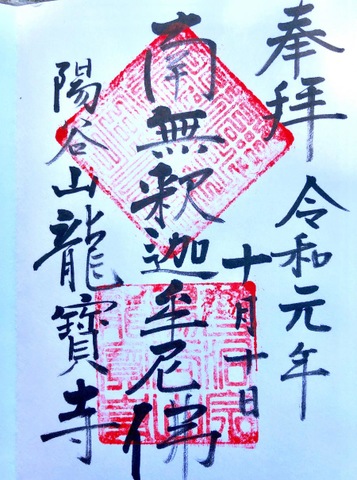 奉拝
令和元年
十月十日
南無釈迦牟尼佛
陽谷山龍寶寺